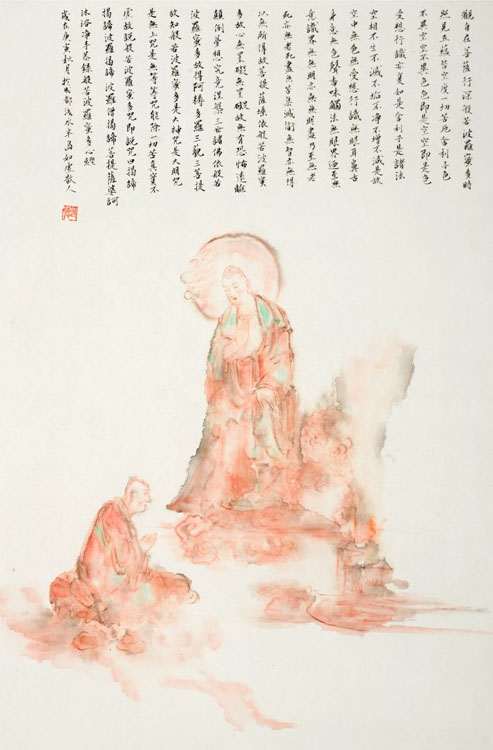 觀自在菩薩行深般若波羅蜜多時
照見五蘊皆空度一切苦厄舍利子色
不異空空不異色色即是空空即是色
受想行識亦復如是舍利子是諸法
空相不生不滅不垢不淨不增不減是故
空中無色無受想行識無眼耳鼻舌
身意無色聲香味觸法無眼界乃至無
意識界無無明亦無無明盡乃至無老
死亦無老死盡無苦集滅道無智亦無得
以無所得故菩提薩埵依般若波羅蜜
多故心無罣礙無罣礙故無有恐怖遠離
顛倒夢想究竟涅槃三世諸佛依般若
波羅蜜多故得阿耨多羅三藐三菩提
故知般若波羅蜜多是大神咒是大明咒
是無上咒是無等等咒能除一切苦真實不
虛故說般若波羅蜜多咒即說咒曰揭諦
揭諦波羅揭諦波羅僧揭諦菩提薩婆訶
沐浴淨手恭錄般若波羅蜜多心經
歲在庚寅秋月於成都 如虛散人